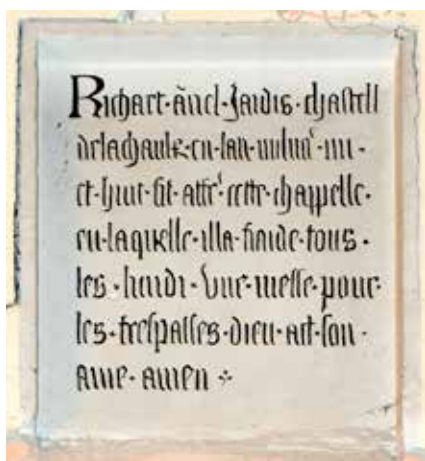 Richart · ancel · Jaidis · chastell
en · lan · iiii ·
et · huit · fit · cette · chappelle ·
en · laquelle · illa · funde · tous ·
les · lundi · vne · messe · pour ·
les · trespasses · dieu · ait · son ·
ame · amen